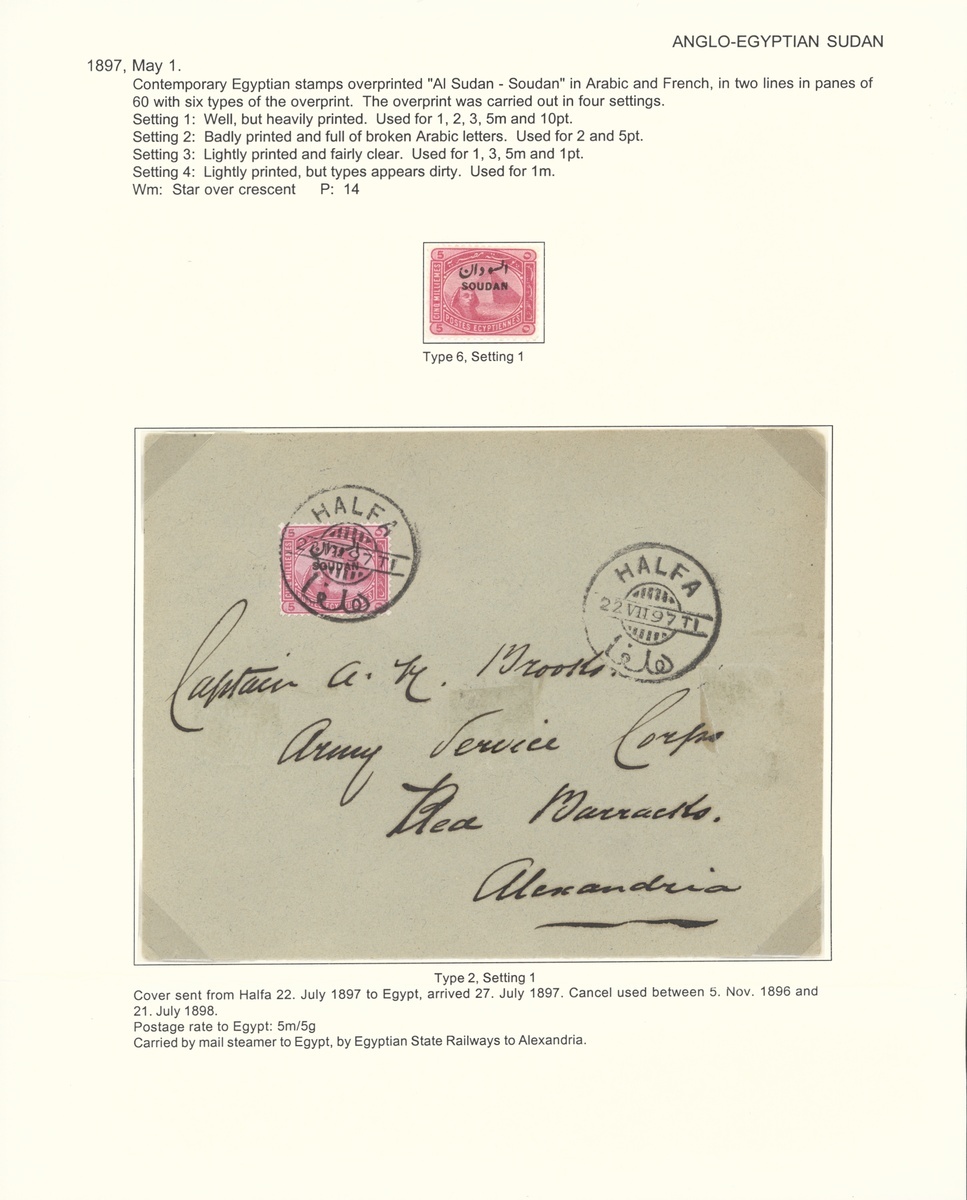 ANGLO-EGYPTIAN SUDAN
1897, May 1.
Contemporary Egyptian stamps overprinted "Al Sudan - Soudan" in Arabic and French, in two lines in panes of
60 with six types of the overprint. The overprint was carried out in four settings.
Setting 1: Well, but heavily printed. Used for 1, 2, 3, 5m and 10pt.
Setting 2: Badly printed and full of broken Arabic letters. Used for 2 and 5pt.
Setting 3: Lightly printed and fairly clear. Used for 1, 3, 5m and 1pt.
Setting 4: Lightly printed, but types appears dirty. Used for 1m.
Wm: Star over crescent P: 14
5
CINQ MILLIEMES
السودان
SOUDAN
POSTES EGYPTIENNES
5
Type 6, Setting 1
HALFA
97 T1
السودان
SOUDAN
حلفا
5
5
HALFA
22 VII 97 T1
حلفا
Captain A. K. Brooks
Army Service Corps
Barracks.
Alexandria
Type 2, Setting 1
Cover sent from Halfa 22. July 1897 to Egypt, arrived 27. July 1897. Cancel used between 5. Nov. 1896 and
21. July 1898.
Postage rate to Egypt: 5m/5g
Carried by mail steamer to Egypt, by Egyptian State Railways to Alexandria.